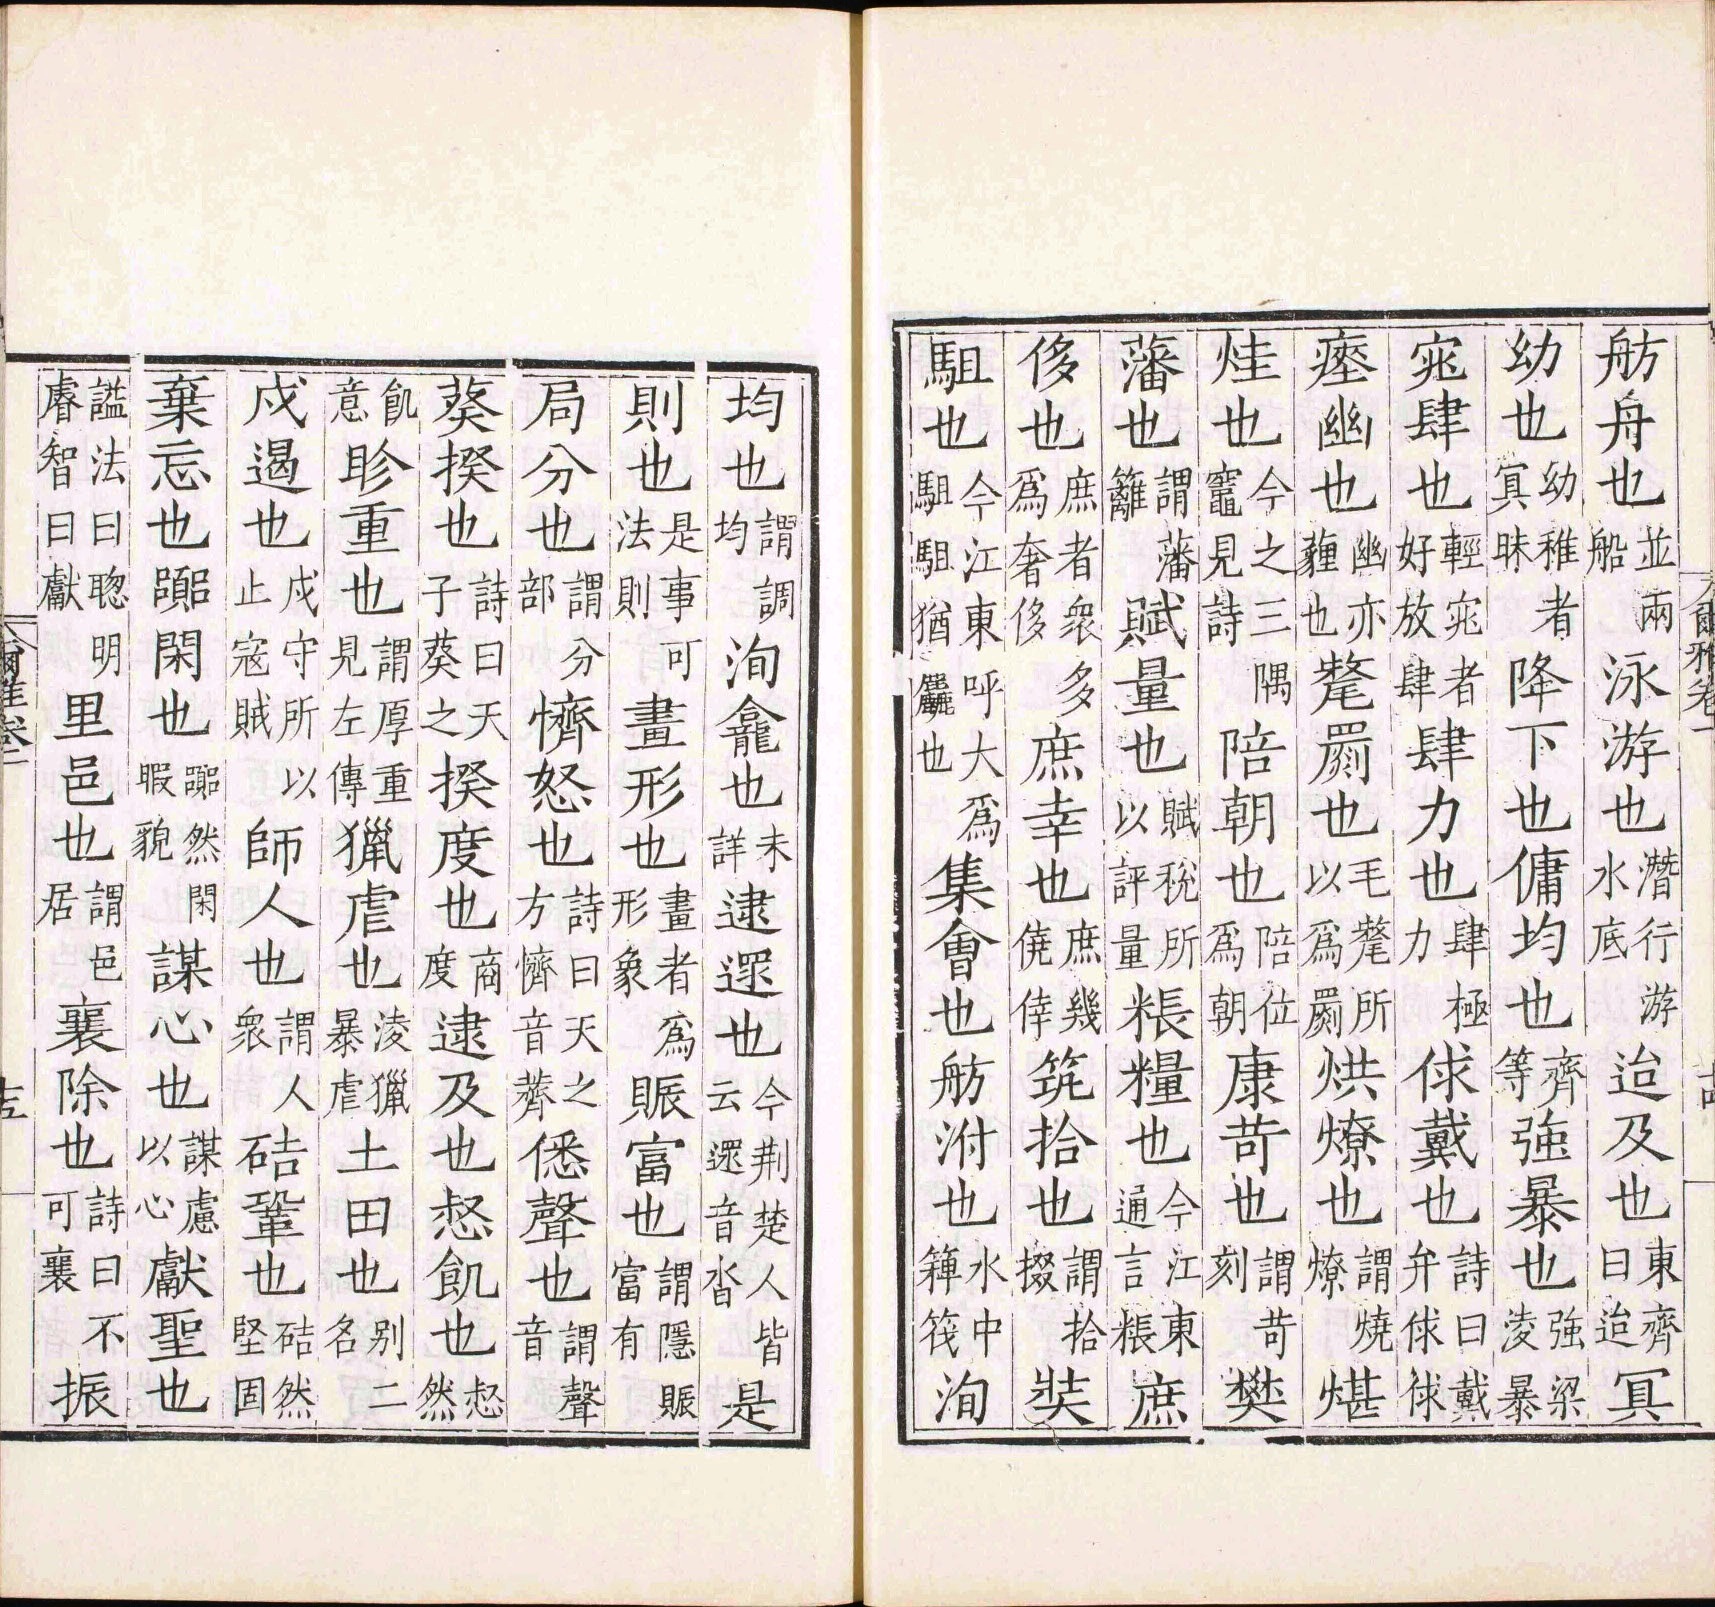 舫舟也並兩船泳游也潛行游水底迨及也東齊曰迨冥
幼也幼稚者冥昧降下也傭均也齊等強暴也強梁淩暴
窕肆也輕窕者好放肆肆力也肆極力俅戴也詩曰戴弁俅俅
瘞幽也幽亦薶也氂罽也毛氂所以爲罽烘燎也謂燒燎煁
烓也今之三隅竈見詩陪朝也陪位爲朝康苛也謂苛刻樊
藩也謂藩籬賦量也賦稅所以評量粻糧也今江東通言粻庶
侈也庶者衆多爲奢侈庶幸也庶幾僥倖筑拾也謂拾掇奘
駔也今江東呼大爲駔駔猶麤也集會也舫泭也水中箄筏洵
均也謂調均洵龕也未詳逮遝也今荆楚人皆云遝音沓是
則也是事可法則畫形也畫者爲形象賑富也謂隱賑富有
局分也謂分部懠怒也詩曰天之方懠音薺僁聲也謂聲音
葵揆也詩曰天子葵之揆度也商度逮及也惄飢也惄然
飢意眕重也謂厚重見左傳獵虐也淩獵暴虐土田也别二名
戍遏也戍守所以止寇賊師人也謂人衆硈鞏也硈然堅固
棄忘也嚻閑也嚻然閑暇貌謀心也謀慮以心獻聖也
謚法曰聦明睿智曰獻里邑也謂邑居襄除也詩曰不可襄振